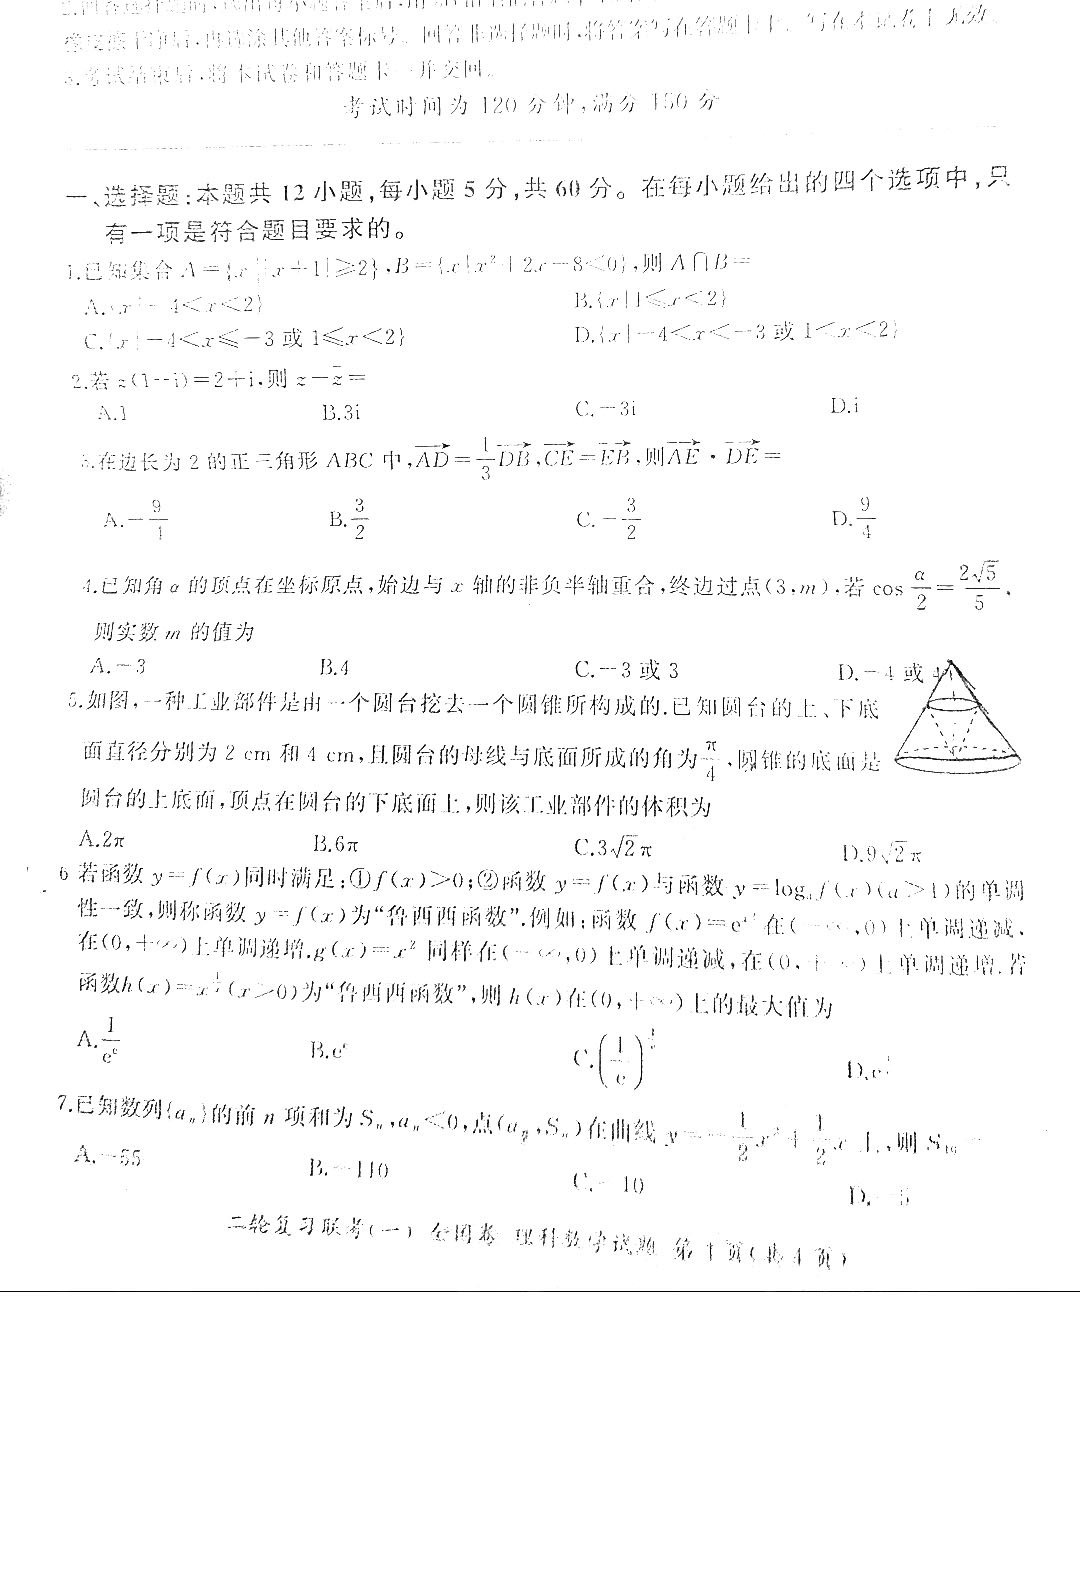 橡皮擦干净后,再选涂其他答案标号。回答非选择题时,将答案写在答题卡上。写在本试卷上无效。
3.考试结束后,将本试卷和答题卡一并交回。
考试时间为 120 分钟,满分 150 分
一、选择题:本题共 12 小题,每小题 5 分,共 60 分。在每小题给出的四个选项中,只
有一项是符合题目要求的。
1.已知集合 A={x||x+1|≥2},B={x|x²+2x-8<0},则 A∩B=
A.{x|-4<x<2} B.{x|1≤x<2}
C.{x|-4<x≤-3 或 1≤x<2} D.{x|-4<x<-3 或 1<x<2}
2.若 z(1-i)=2+i,则 z-z̄=
A.1 B.3i C.-3i D.i
3.在边长为 2 的正三角形 ABC 中,AD→=1/3 DB→,CE→=EB→,则AE→·DE→=
A.-9/4 B.3/2 C.-3/2 D.9/4
4.已知角 α 的顶点在坐标原点,始边与 x 轴的非负半轴重合,终边过点(3,m),若 cos α/2=2√5/5,
则实数 m 的值为
A.-3 B.4 C.-3 或 3 D.-4 或 4
5.如图,一种工业部件是由一个圆台挖去一个圆锥所构成的.已知圆台的上、下底
面直径分别为 2 cm 和 4 cm,且圆台的母线与底面所成的角为π/4,圆锥的底面是
圆台的上底面,顶点在圆台的下底面上,则该工业部件的体积为
A.2π B.6π C.3√2π D.9√2π
6 若函数 y=f(x)同时满足:①f(x)>0;②函数 y=f(x)与函数 y=logₐf(x)(a>1)的单调
性一致,则称函数 y=f(x)为“鲁西西函数”.例如:函数 f(x)=e^x² 在(-∞,0)上单调递减,
在(0,+∞)上单调递增.g(x)=x² 同样在(-∞,0)上单调递减,在(0,+∞)上单调递增.若
函数h(x)=x^(1/x)(x>0)为“鲁西西函数”,则 h(x)在(0,+∞)上的最大值为
A.1/e^e B.e^e C.(1/e)^(1/e) D.e^(1/e)
7.已知数列{aₙ}的前 n 项和为 Sₙ,aₙ<0,点(aₙ,Sₙ)在曲线 y=-1/2x²+1/2x 上,则 S₁₀=
A.-55 B.-110 C.-10 D.-5
二轮复习联考(一) 全国卷 理科数学试题 第 1 页(共 4 页)